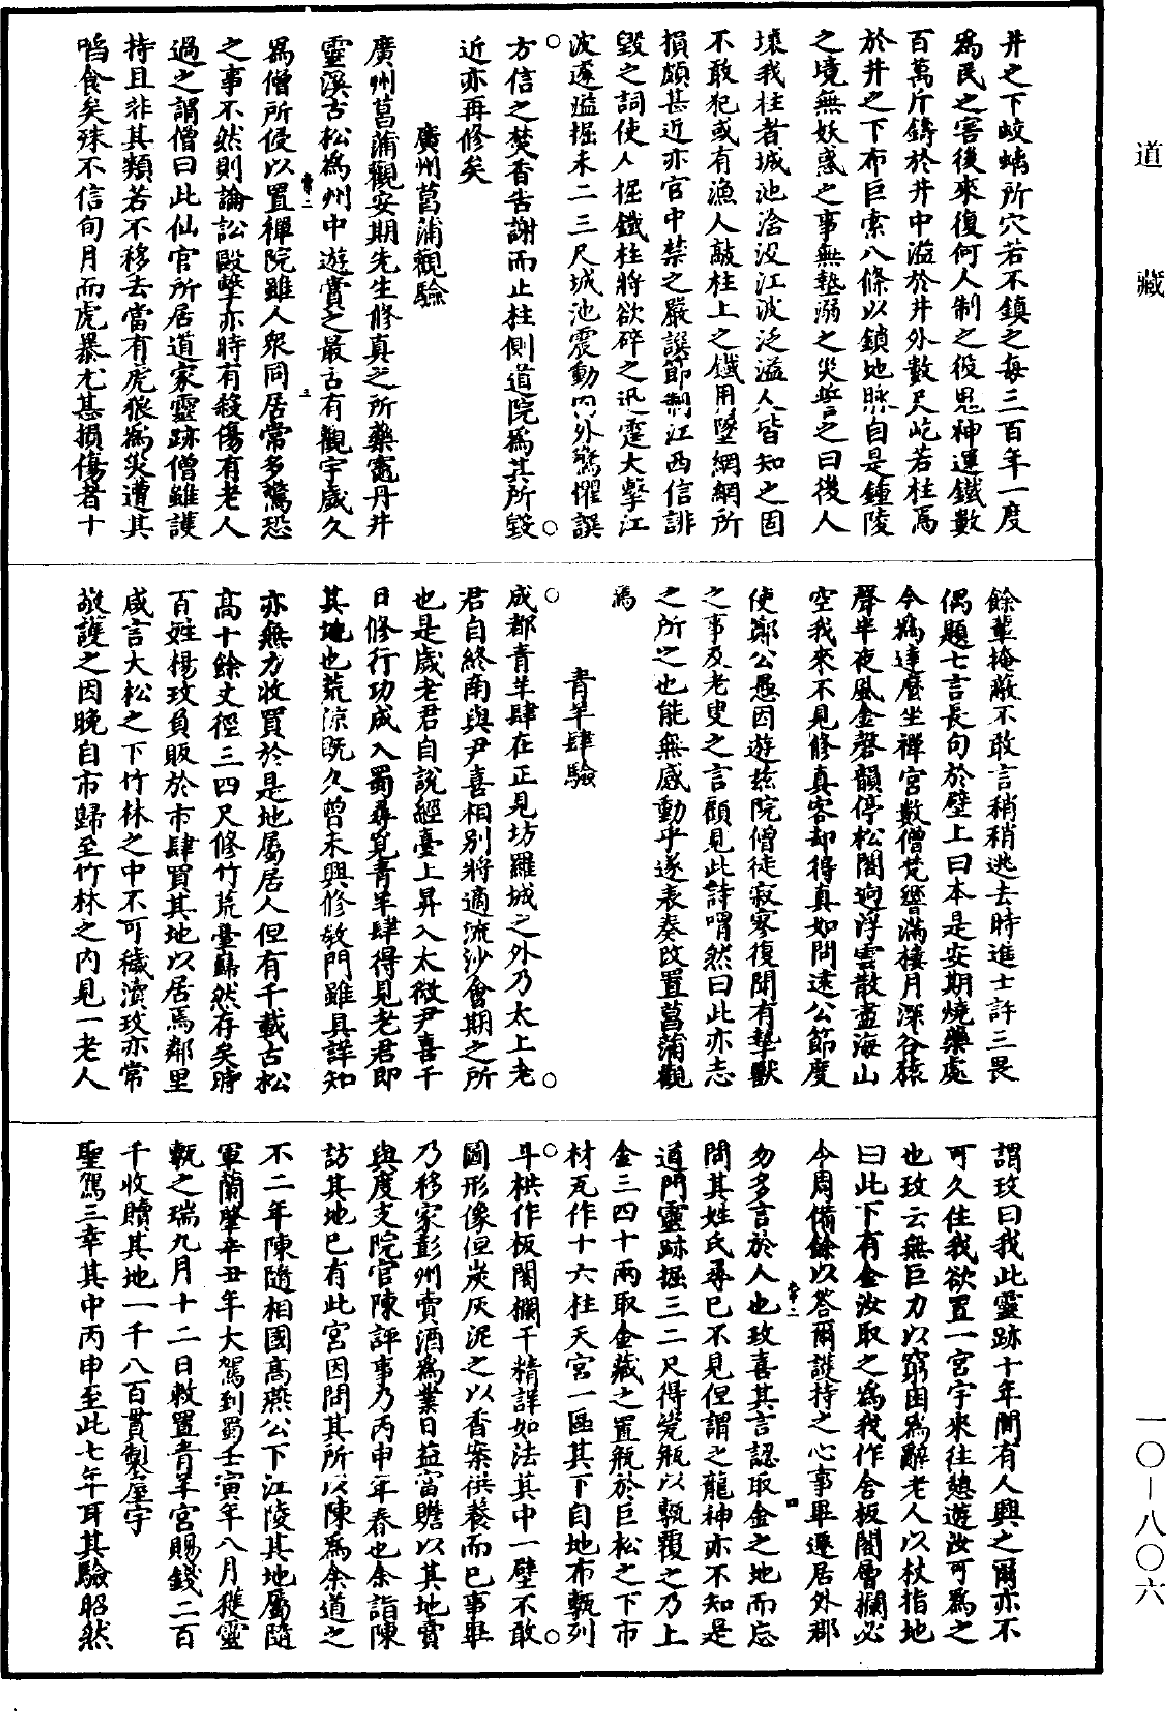 道藏
一〇—八〇六
井之下蛟螭所穴若不鎮之每三百年一度
爲民之害後來復何人制之役思神運鐵數
百萬斤鑄於井中溢於井外數尺屹若柱焉
於井之下布巨索八條以鎖地脉自是鍾陵
之境無妖惑之事無墊溺之災誓之曰後人
壞我柱者城池淪没江波泛溢人皆知之固
不敢犯或有漁人敲柱上之鐵用墜網網所
損頗甚近亦官中禁之嚴譔節制江西信誹
毀之詞使人掘鐵柱將欲碎之迅霆大擊江
波遽溢掘未二三尺城池震動内外驚懼譔
方信之焚香告謝而止柱側道院爲其所毀
近亦再修矣
廣州菖蒲觀驗
廣州菖蒲觀安期先生修真之所藥竈丹井
靈溪古松爲州中遊賞之最古有觀宇歲久
爲僧所侵以置禪院雖人衆同居常多驚恐
之事不然則論訟毆擊亦時有殺傷有老人
過之謂僧曰此仙官所居道家靈跡僧雖護
持且非其類若不移去當有虎狼爲災遭其
啗食矣殊不信旬月而虎暴尤甚損傷者十
餘輩掩蔽不敢言稍稍逃去時進士許三畏
偶題七言長句於壁上曰本是安期燒藥處
今爲達麼坐禪宫數僧梵響滿樓月深谷猿
聲半夜風金磬韻停松閣逈浮雲散盡海山
空我來不見修真客却得真如問遠公節度
使鄭公愚因遊兹院僧徒寂寥復聞有摯獸
之事及老叟之言顧見此詩喟然曰此亦志
之所之也能無感動乎遂表奏改置菖蒲觀
焉
青羊肆驗
成都青羊肆在正見坊羅城之外乃太上老
君自終南與尹喜相别將適流沙會期之所
也是歲老君自說經臺上昇入太微尹喜千
日修行功成入蜀尋覓青羊肆得見老君即
其地也荒凉既久曾未興修教門雖具詳知
亦無力收買於是地屬居人但有千載古松
高十餘丈徑三四尺修竹荒臺巋然存矣時
百姓楊玫負販於市肆買其地以居焉鄰里
咸言大松之下竹林之中不可穢瀆玫亦常
敬護之因晚自市歸至竹林之内見一老人
謂玫曰我此靈跡十年間有人興之爾亦不
可久住我欲置一宫宇來往憇遊汝可爲之
也玫云無巨力以窮困爲辭老人以杖指地
曰此下有金汝取之爲我作舍板閣層欄必
令周備餘以答爾護持之心事畢遷居外郡
勿多言於人也玫喜其言認取金之地而忘
問其姓氏尋已不見但謂之龍神亦不知是
道門靈跡掘三二尺得甆瓶以甎覆之乃上
金三四十兩取金藏之置瓶於巨松之下市
材瓦作十六柱天宫一區其下自地布甎列
斗栱作板閣欄干精詳如法其中一壁不敢
圖形像但炭灰泥之以香案供養而已事畢
乃移家彭州賣酒爲業日益富贍以其地賣
與度支院官陳評事乃丙申年春也余詣陳
訪其地已有此宫因問其所以陳爲余道之
不二年陳隨相國高燕公下江陵其地屬隨
軍蘭肇辛丑年大駕到蜀壬寅年八月獲靈
甎之瑞九月十二日敕置青羊宫賜錢二百
千收贖其地一千八百貫製屋宇
聖駕三幸其中丙申至此七年耳其驗昭然